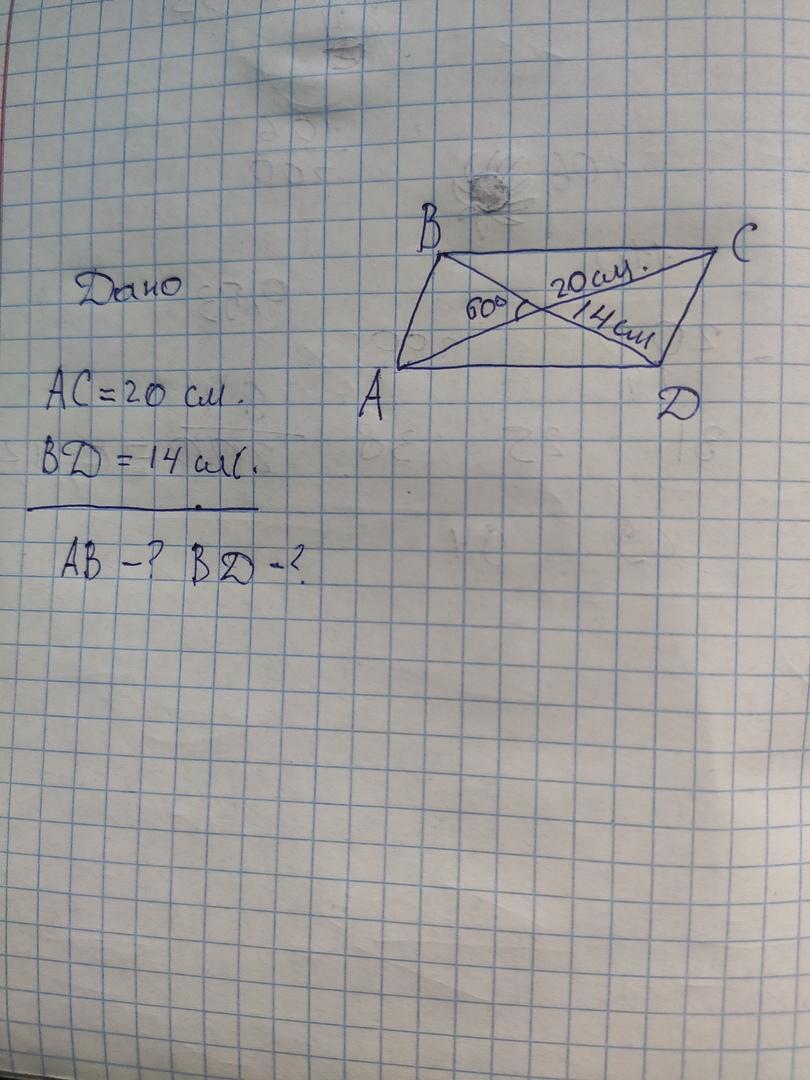 Дано
AC = 20 см.
BD = 14 см.
AB - ? BD - ?
B
C
60°
20 см.
14 см
A
D